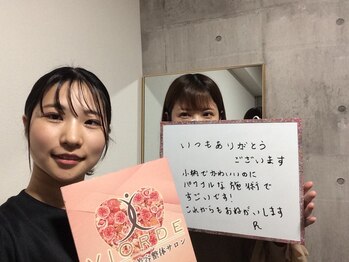 いつもありがとう
ございます
小柄でかわいいのに
パワフルな施術で
すごいです!
これからもおねがいします
R
VIORDE
整体サロン